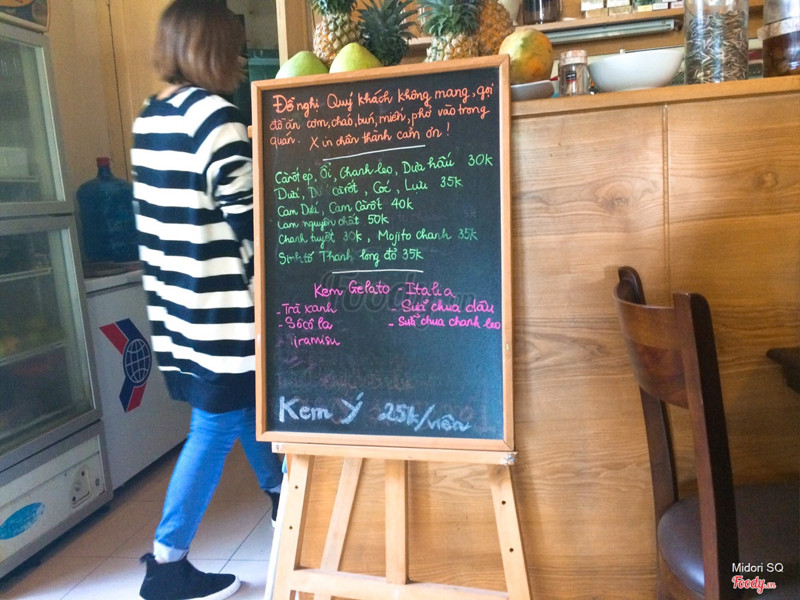 Đề nghị Quý khách không mang, gọi
đồ ăn cơm, cháo, bún, miến, phở vào trong
quán. Xin chân thành cảm ơn!
Cà rốt ép, Ổi, Chanh leo, Dưa hấu 30k
Dưới, cà rốt, Cóc, Lựu 35k
Cam Dưới, Cam Cà rốt 40k
Cam nguyên chất 50k
Chanh tuyết 30k, Mojito chanh 35k
Sinh tố Thanh long đỏ 35k
Kem Gelato - Italia
- Trà xanh - Sữa chua dâu
- Sôcôla - Sữa chua chanh leo
Tiramisu
Kem Ý 25k/viên
Midori SQ
Foody.vn